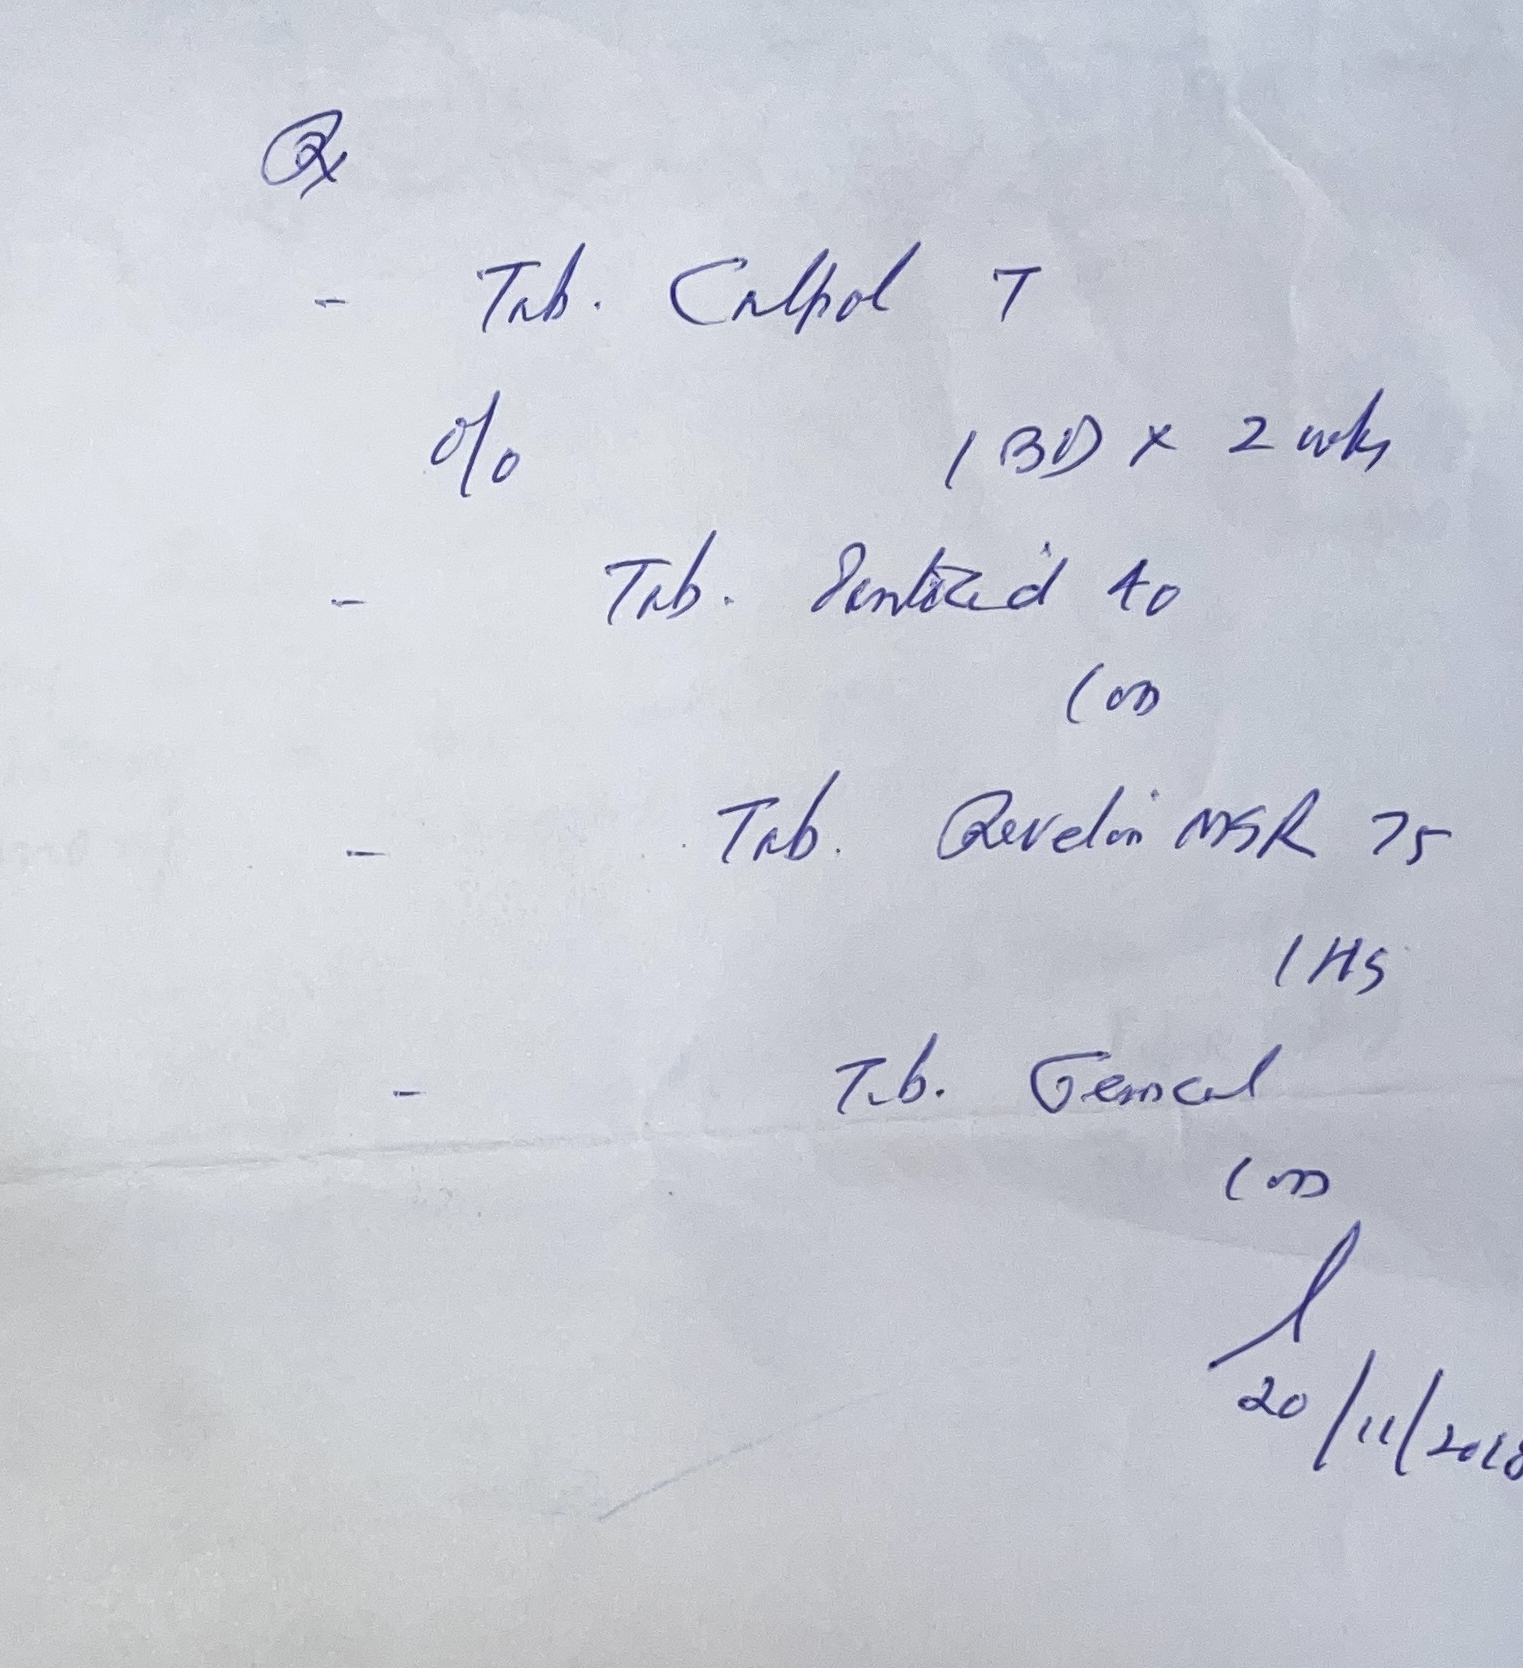 Rx
- Tab. Calpol T
o/o 1 BD x 2 wks
- Tab. Pantocid 40
1 OD
- Tab. Revelin MSR 75
1 HS
- Tab. Gemcal
1 OD
20/11/2018